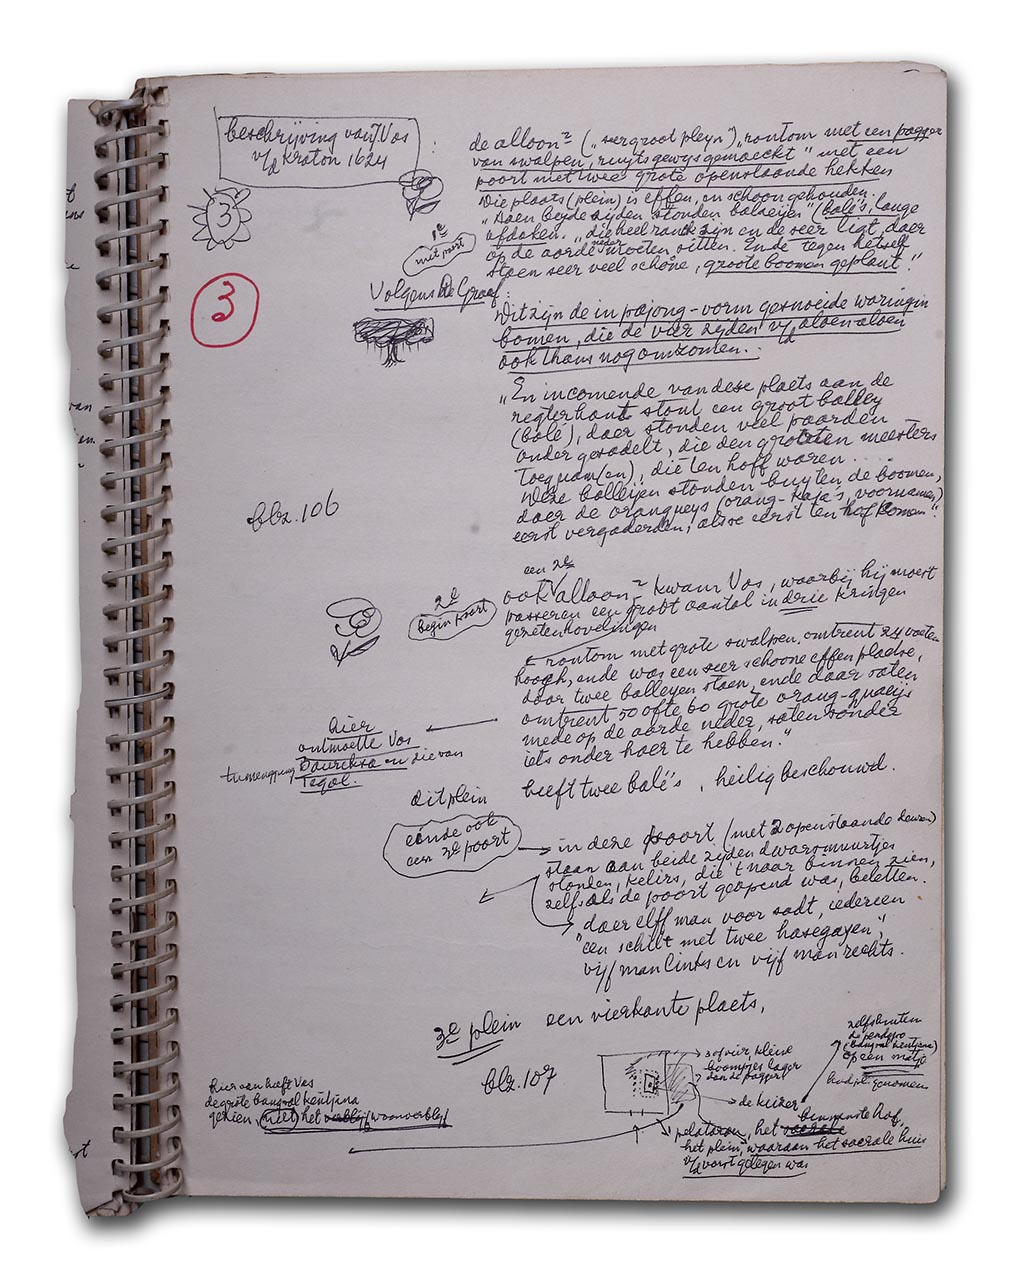 beschrijving van J. Vos
v/d kraton 1624
3
3
de alloon² („seer groot pleyn") „rontom met een pagger
van swalpen, ruytsgewys gemaeckt" met een
poort met twee grote openslaande hekken
Die plaats (plein) is effen, en schoon gehouden.
„Aaen beyde zijden stonden baleijen" (balé's, lange
afdaken. „die heel ranck zijn en de seer ligt, daer
op de aarde neder moeten sitten. Ende tegen hetself
staen seer veel schone, groote boomen geplant."
1e
met poort
Volgens de Graaf:
Dit zijn de in pajong-vorm gesnoeide waringin
bomen, die de vier zijden v/d aloen aloen
ook thans nog omzomen.
„En incomende van dese plaets aan de
regterhant stont een groot balley
(balé), daer stonden veel paarden
onder gesadelt, die den grootten meesters
toequam(en), die ten hoff waren.....
Deze balleijen stonden buyten de boomen,
daer de orangueys (orang-kaja's, voornamen)
eerst vergaderden, als se eerst ten hof komen".
blz. 106
een 2e
ook alloon² kwam Vos, waarbij hij moest
passeren een groot aantal in drie kringen
gezeten hovelingen
2e
begin poort
rontom met grote swalpen, omtrent 24 voeten
hoogh, ende was een seer schoone effen plaetse,
daer twee balleyen staen, ende daar saten
omtrent 50 ofte 60 grote orang-queijs
mede op de aarde neder, saten sonder
iets onder haer te hebben."
hier
ontmoette Vos
tumenggung Baureksa en die van
Tegal.
dit plein heeft twee balé's, heilig beschouwd.
einde ook
een 3e poort
in deze poort (met 2 openslaande deuren)
staan aan beide zijden dwarsmuurtjes
stonden, kelirs, die 't naar binnen zien,
zelfs als de poort geopend was, beletten.
„daer elff man voor sadt, iedereen
een schilt met twee hasegayen",
vijf man links en vijf man rechts.
3e plein een vierkante plaets,
blz. 107
3 of vier, kleine
boompjes lager
dan de pagger
de keizer
zelfs buiten
de pendopo
(bangsal kentjana)
op een matje
had plaatsgenomen
hier van heeft Vos
de grote bangsal kentjana
gezien, niet het verblijf woonverblijf
pelataran, het binnenste hof,
het plein, waaraan het sacrale huis
v/d vorst gelegen was